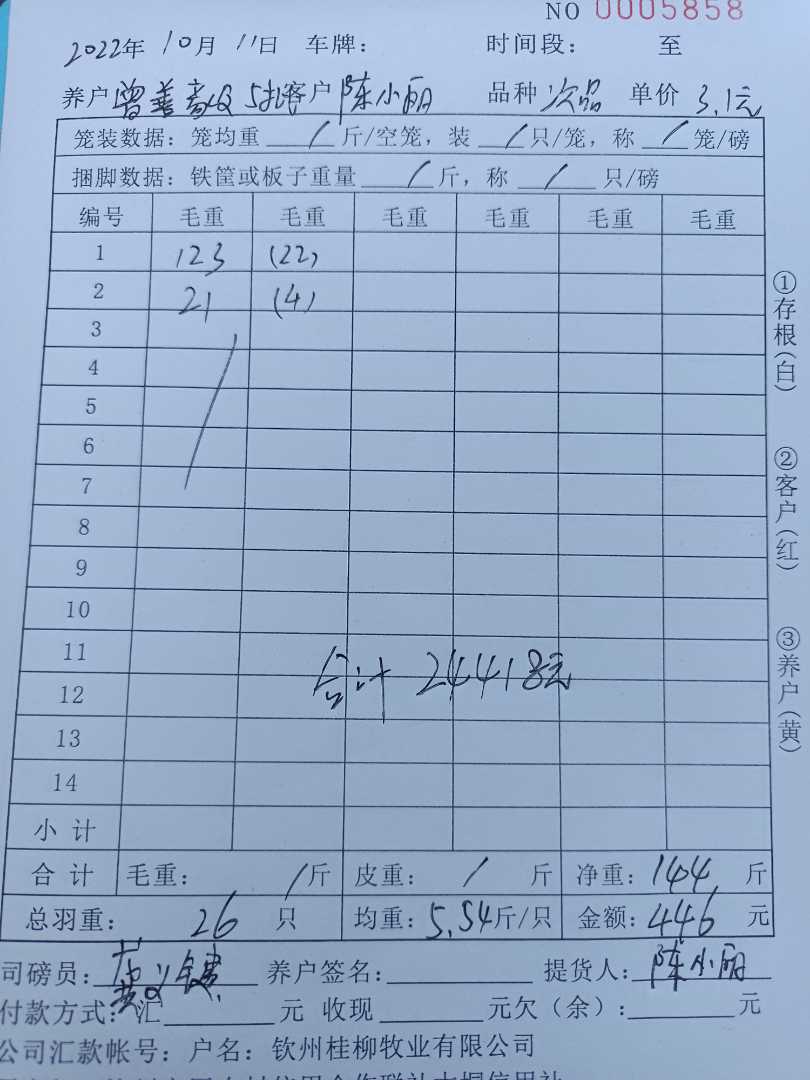 NO 0005858
2022年 10月 11日 车牌： 时间段： 至
养户 曾善 5批 客户 陈小丽 品种 次品 单价 3.1元
笼装数据：笼均重 / 斤/空笼，装 / 只/笼，称 / 笼/磅
捆脚数据：铁筐或板子重量 / 斤，称 / 只/磅
编号 毛重 毛重 毛重 毛重 毛重 毛重
1 123 (22)
2 21 (4)
3
4
5
6
7
8
9
10
11
合计 24418元
12
13
14
小计
合计 毛重： / 斤 皮重： / 斤 净重：144 斤
总羽重： 26 只 均重：5.54斤/只 金额：446 元
司磅员： 养户签名： 提货人：陈小丽
付款方式：汇 元 收现 元欠（余）： 元
公司汇款帐号：户名：钦州桂柳牧业有限公司
①存根（白）
②客户（红）
③养户（黄）